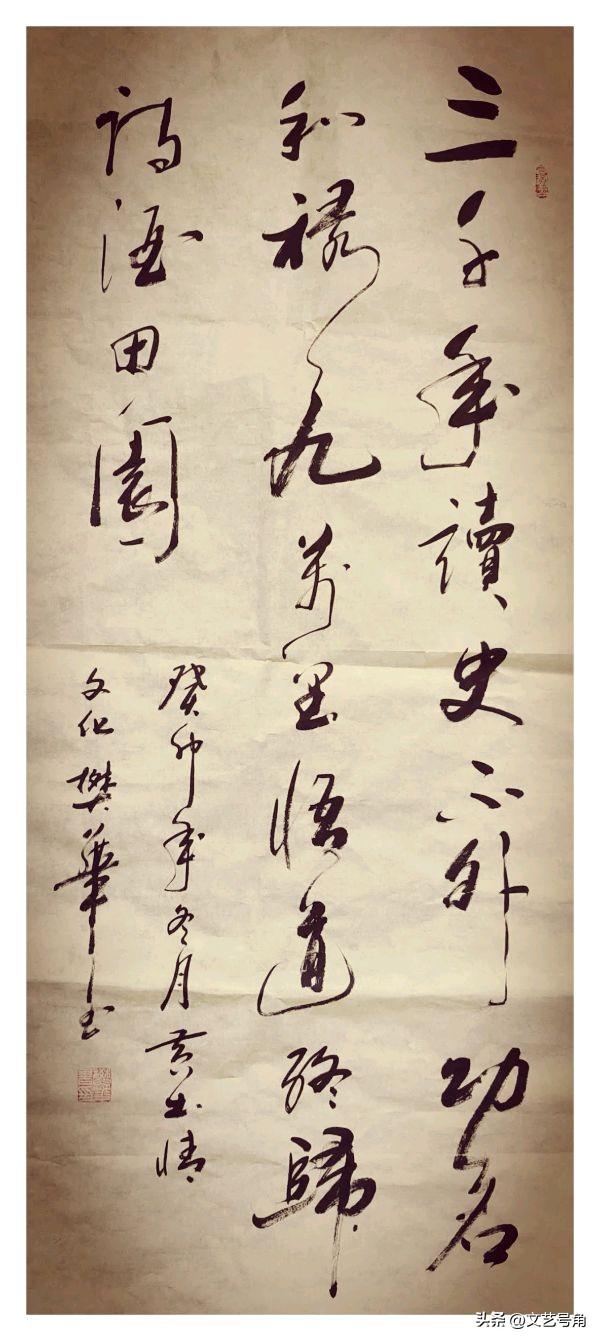 三千年讀史不外功名
利祿九萬里悟道終歸
詩酒田園
癸卯年冬月黃土情
文化樊華書
头条 @文艺号角